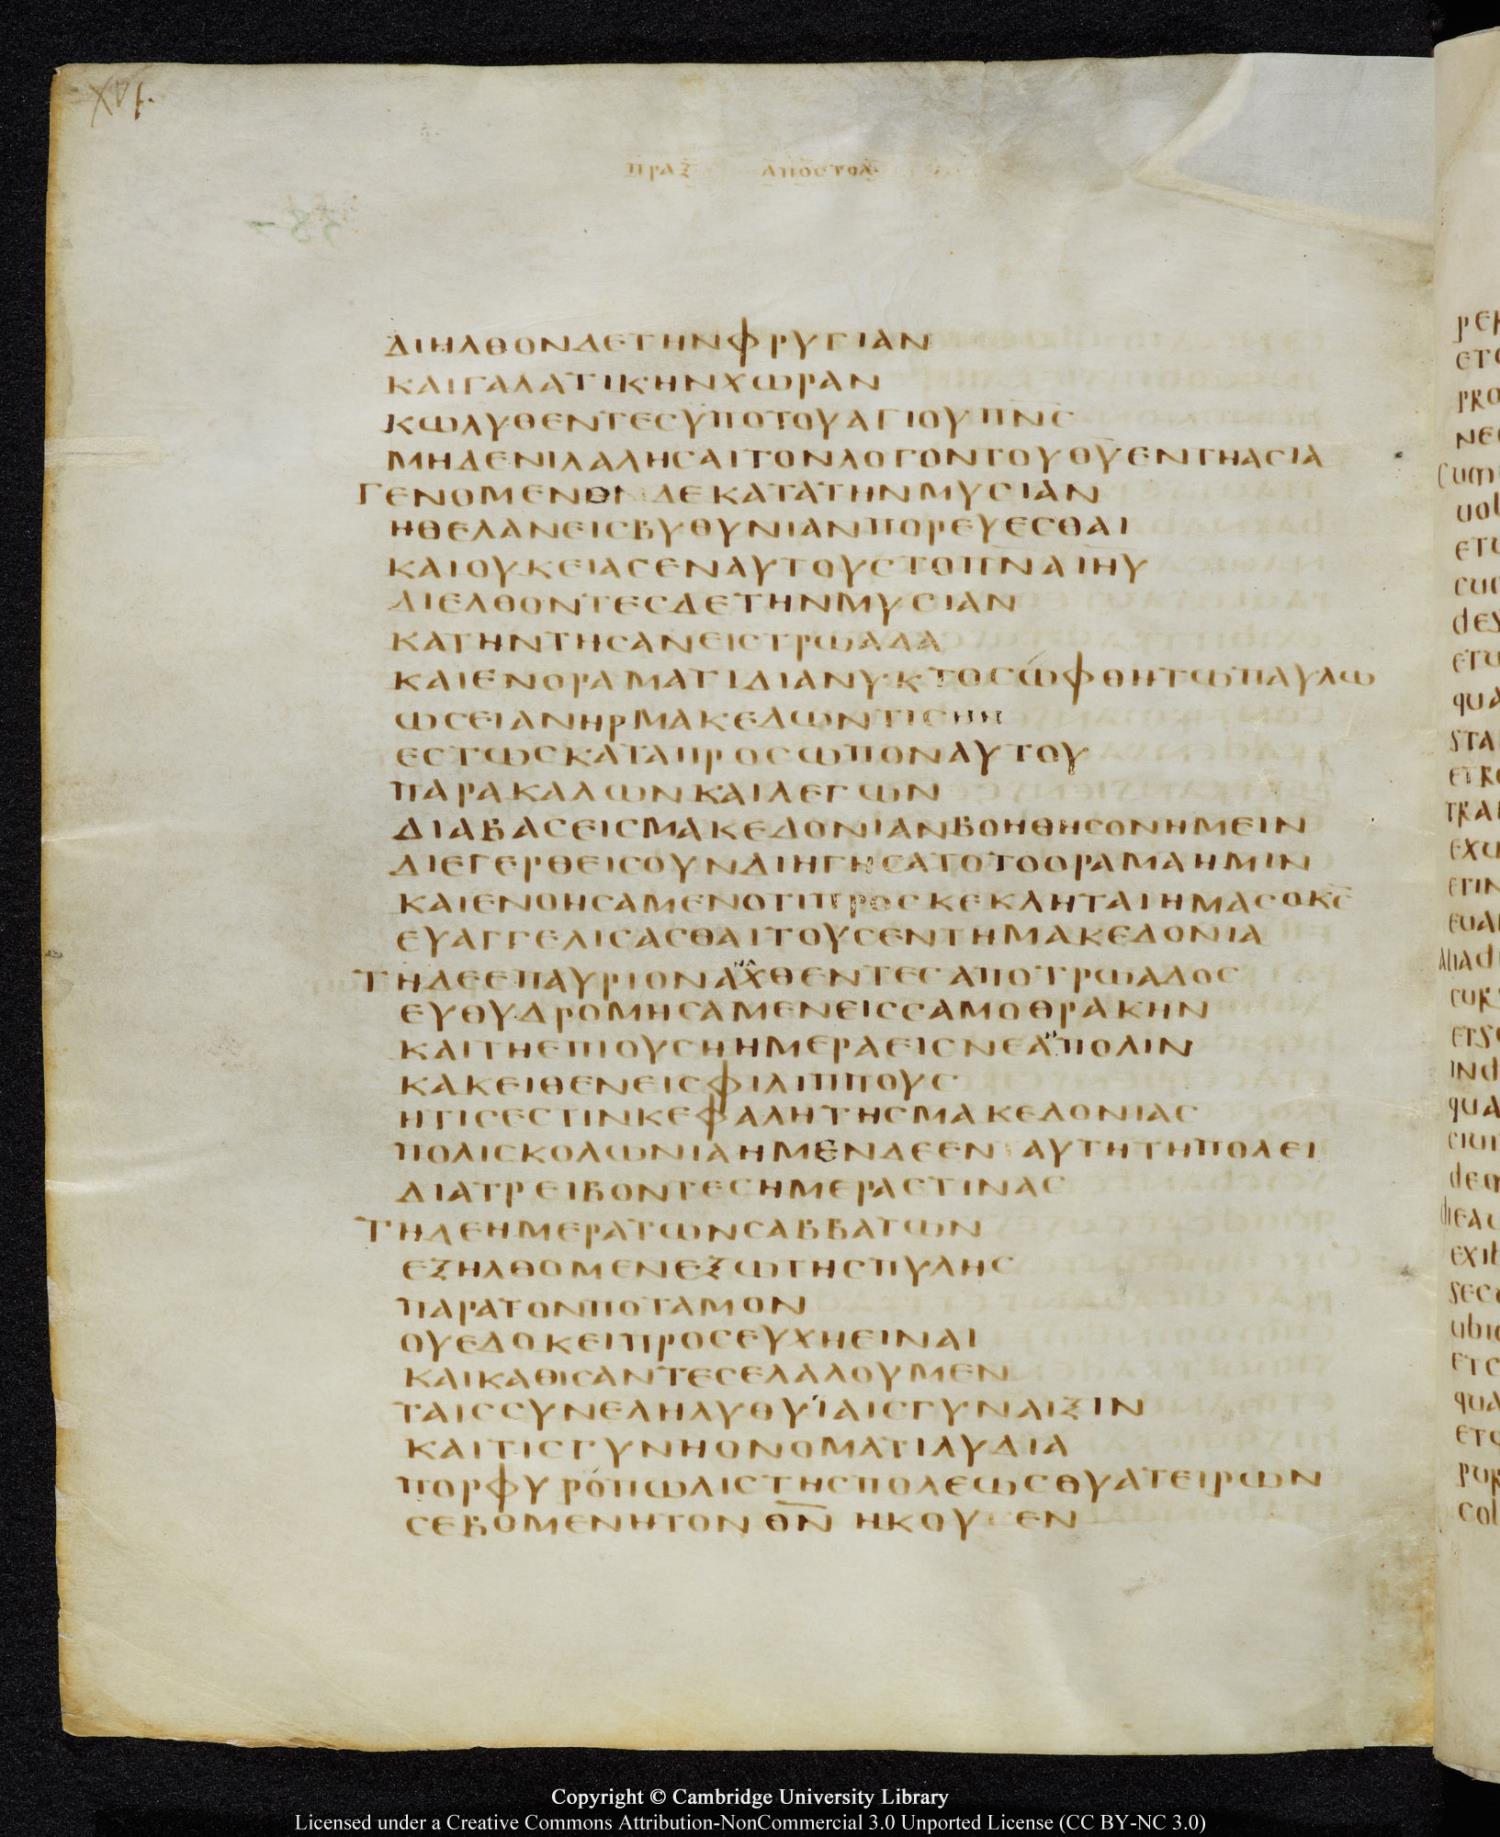 XVI.
ΠΡΑΞ ΑΠΟСΤΟΛ
ΔΙΗΛΘΟΝΔΕΤΗΝΦΡΥΓΙΑΝ
ΚΑΙΓΑΛΑΤΙΚΗΝΧΩΡΑΝ
ΚΩΛΥΘΕΝΤΕСΥΠΟΤΟΥΑΓΙΟΥΠΝ̅С̅
ΜΗΔΕΝΙΛΑΛΗСΑΙΤΟΝΛΟΓΟΝΤΟΥΘ̅Υ̅ΕΝΤΗΑСΙΑ
ΓΕΝΟΜΕΝΟΙ ΔΕΚΑΤΑΤΗΝΜΥСΙΑΝ
ΗΘΕΛΑΝΕΙСΒΥΘΥΝΙΑΝΠΟΡΕΥΕСΘΑΙ
ΚΑΙΟΥΚΕΙΑСΕΝΑΥΤΟΥСΤΟΠ̅Ν̅Α̅Ι̅Η̅Υ̅
ΔΙΕΛΘΟΝΤΕСΔΕΤΗΝΜΥСΙΑΝ
ΚΑΤΗΝΤΗСΑΝΕΙСΤΡΩΑΔΑ
ΚΑΙΕΝΟΡΑΜΑΤΙΔΙΑΝΥΚΤΟСΩΦΘΗΤΩΠΑΥΛΩ
ΩСΕΙΑΝΗΡΜΑΚΕΔΩΝΤΙСΗΝ
ΕСΤΩСΚΑΤΑΠΡΟСΩΠΟΝΑΥΤΟΥ
ΠΑΡΑΚΑΛΩΝΚΑΙΛΕΓΩΝ
ΔΙΑΒΑСΕΙСΜΑΚΕΔΟΝΙΑΝΒΟΗΘΗСΟΝΗΜΕΙΝ
ΔΙΕΓΕΡΘΕΙСΟΥΝΔΙΗΓΗСΑΤΟΤΟΟΡΑΜΑΗΜΙΝ
ΚΑΙΕΝΟΗСΑΜΕΝΟΤΙΠΡΟСΚΕΚΛΗΤΑΙΗΜΑСΟΚ̅С̅
ΕΥΑΓΓΕΛΙСΑСΘΑΙΤΟΥСΕΝΤΗΜΑΚΕΔΟΝΙΑ
ΤΗΔΕΕΠΑΥΡΙΟΝΑΧΘΕΝΤΕСΑΠΟΤΡΩΑΔΟС
ΕΥΘΥΔΡΟΜΗСΑΜΕΝΕΙССΑΜΟΘΡΑΚΗΝ
ΚΑΙΤΗΕΠΙΟΥСΗΗΜΕΡΑΕΙСΝΕΑΠΟΛΙΝ
ΚΑΚΕΙΘΕΝΕΙСΦΙΛΙΠΠΟΥС
ΗΤΙСΕСΤΙΝΚΕΦΑΛΗΤΗСΜΑΚΕΔΟΝΙΑС
ΠΟΛΙСΚΟΛΩΝΙΑΗΜΕΝΔΕΕΝ ΑΥΤΗΤΗΠΟΛΕΙ
ΔΙΑΤΡΕΙΒΟΝΤΕСΗΜΕΡΑСΤΙΝΑС
ΤΗΔΕΗΜΕΡΑΤΩΝСΑΒΒΑΤΩΝ
ΕΞΗΛΘΟΜΕΝΕΞΩΤΗСΠΥΛΗС
ΠΑΡΑΤΟΝΠΟΤΑΜΟΝ
ΟΥΕΔΟΚΕΙΠΡΟСΕΥΧΗΕΙΝΑΙ
ΚΑΙΚΑΘΙСΑΝΤΕСΕΛΑΛΟΥΜΕΝ
ΤΑΙССΥΝΕΛΗΛΥΘΥΙΑΙСΓΥΝΑΙΞΙΝ
ΚΑΙΤΙСΓΥΝΗΟΝΟΜΑΤΙΛΥΔΙΑ
ΠΟΡΦΥΡΟΠΩΛΙСΤΗСΠΟΛΕΩСΘΥΑΤΕΙΡΩΝ
СΕΒΟΜΕΝΗΤΟΝ Θ̅Ν̅ ΗΚΟΥСΕΝ
Copyright © Cambridge University Library
Licensed under a Creative Commons Attribution-NonCommercial 3.0 Unported License (CC BY-NC 3.0)